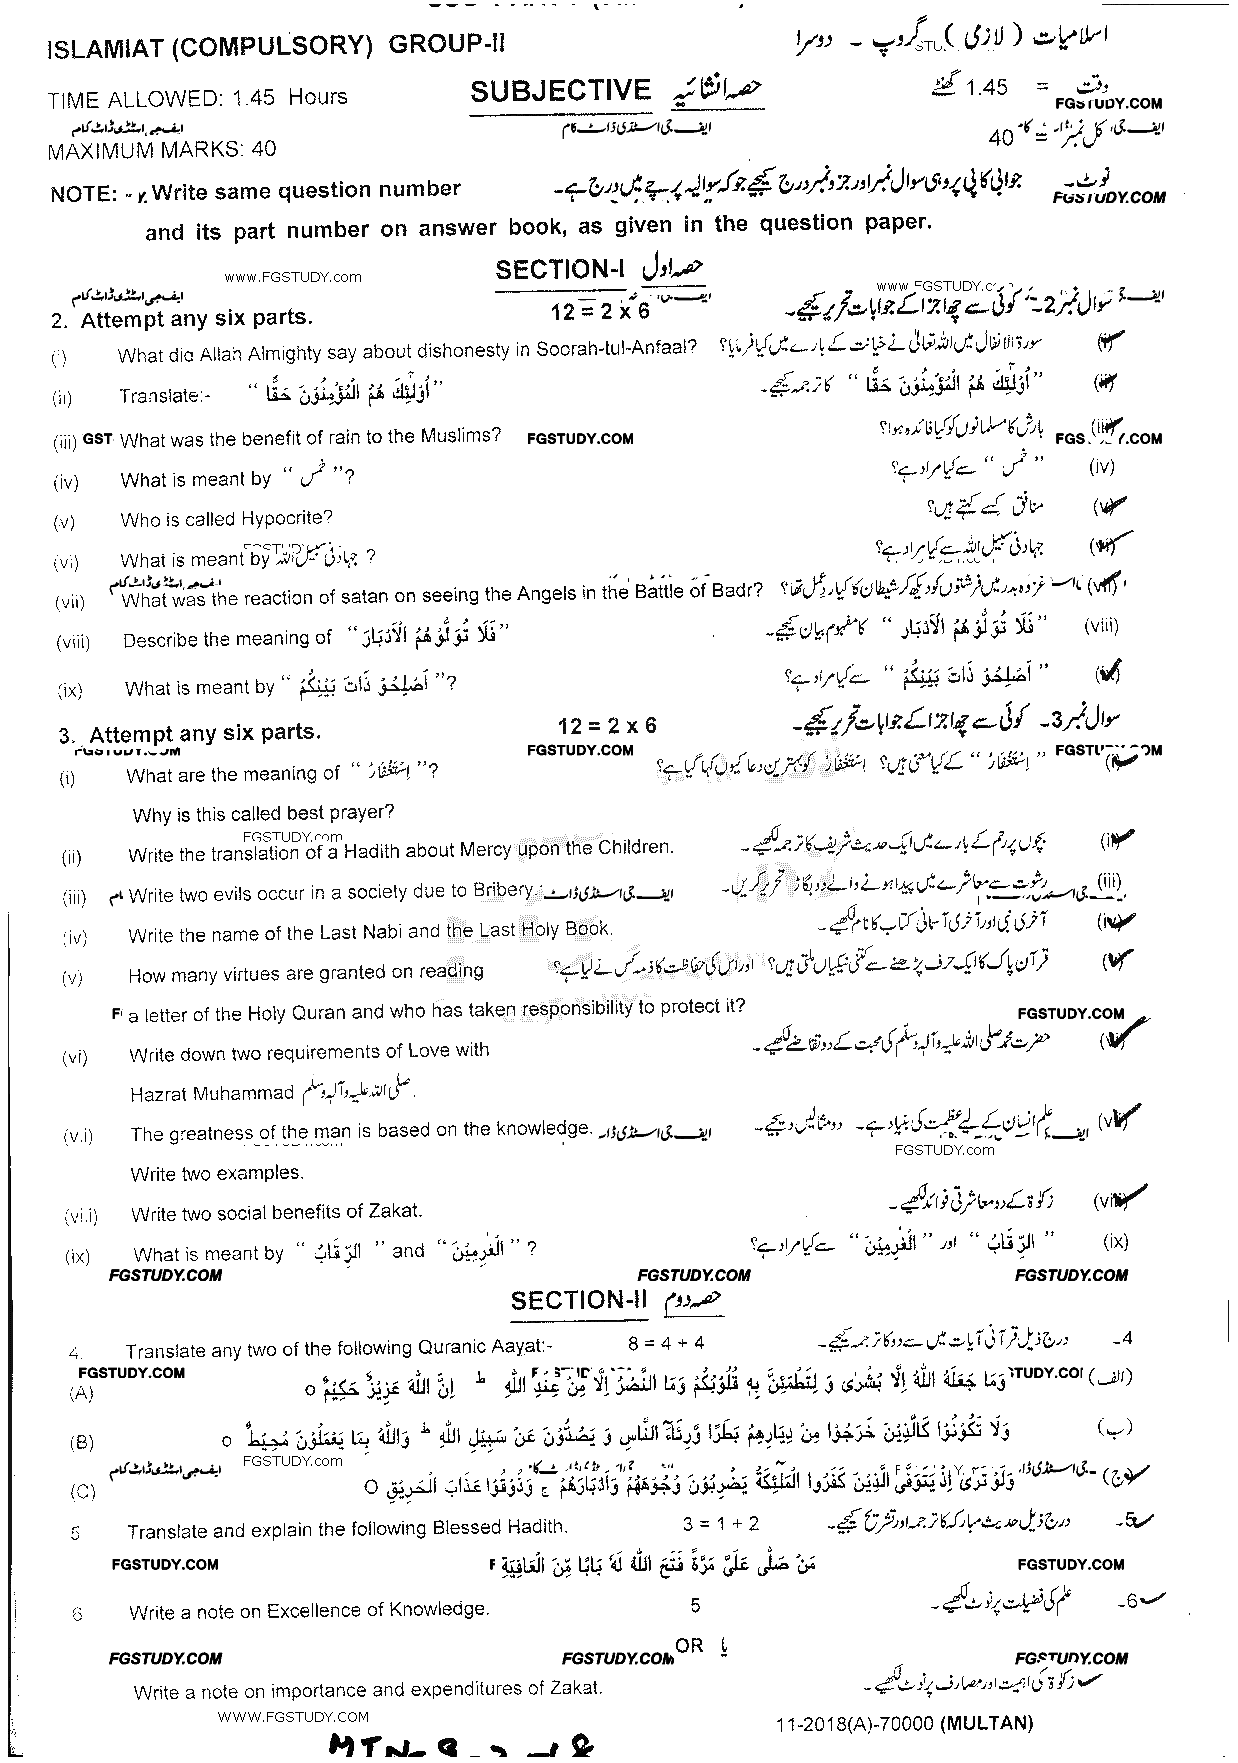 ISLAMIAT (COMPULSORY) GROUP-II اسلامیات (لازمی) گروپ - دوسرا
TIME ALLOWED: 1.45 Hours SUBJECTIVE حصہ انشائیہ وقت = 1.45 گھنٹے
FGSTUDY.COM
ایف جی اسٹڈی ڈاٹ کام ایف جی اسٹڈی ڈاٹ کام
MAXIMUM MARKS: 40 کل نمبر = 40
NOTE: - Write same question number نوٹ۔ جوابی کاپی پر وہی سوال نمبر اور جزو نمبر درج کیجیے جو کہ سوالیہ پرچے میں درج ہے۔
FGSTUDY.COM
and its part number on answer book, as given in the question paper.
www.FGSTUDY.com SECTION-I حصہ اول
ایف جی اسٹڈی ڈاٹ کام www.FGSTUDY.c
2. Attempt any six parts. 12 = 2 x 6 سوال نمبر 2۔ کوئی سے چھ اجزا کے جوابات تحریر کیجیے۔
(i) What did Allah Almighty say about dishonesty in Soorah-tul-Anfaal? سورۃ الانفال میں اللہ تعالیٰ نے خیانت کے بارے میں کیا فرمایا؟ (i)
(ii) Translate:- " أُولٰٓئِكَ هُمُ الْمُؤْمِنُوْنَ حَقًّا " " أُولٰٓئِكَ هُمُ الْمُؤْمِنُوْنَ حَقًّا " کا ترجمہ کیجیے۔ (ii)
(iii) GST What was the benefit of rain to the Muslims? FGSTUDY.COM بارش کا مسلمانوں کو کیا فائدہ ہوا؟ (iii)
(iv) What is meant by " خمس "? " خمس " سے کیا مراد ہے؟ (iv)
(v) Who is called Hypocrite? منافق کسے کہتے ہیں؟ (v)
(vi) What is meant by جہاد فی سبیل اللہ ? جہاد فی سبیل اللہ سے کیا مراد ہے؟ (vi)
ایف جی اسٹڈی ڈاٹ کام
(vii) What was the reaction of satan on seeing the Angels in the Battle of Badr? غزوہ بدر میں فرشتوں کو دیکھ کر شیطان کا کیا ردعمل تھا؟ (vii)
(viii) Describe the meaning of " فَلَا تُوَلُّوْهُمُ الْأَدْبَارَ " " فَلَا تُوَلُّوْهُمُ الْأَدْبَارَ " کا مفہوم بیان کیجیے۔ (viii)
(ix) What is meant by " أَصْلِحُوْ ذَاتَ بَيْنِكُمْ "? " أَصْلِحُوْ ذَاتَ بَيْنِكُمْ " سے کیا مراد ہے؟
3. Attempt any six parts. 12 = 2 x 6 سوال نمبر 3۔ کوئی سے چھ اجزا کے جوابات تحریر کیجیے۔
FGSTUDY.COM FGSTUDY.COM
(i) What are the meaning of " اِسْتِغْفَارُ "? " اِسْتِغْفَارُ " کے کیا معنی ہیں؟ اِسْتِغْفَارُ کو بہترین دعا کیوں کہا گیا ہے؟
Why is this called best prayer?
FGSTUDY.com
(ii) Write the translation of a Hadith about Mercy upon the Children. بچوں پر رحم کے بارے میں ایک حدیث شریف کا ترجمہ لکھیے۔
(iii) Write two evils occur in a society due to Bribery. رشوت سے معاشرے میں پیدا ہونے والے دو بگاڑ تحریر کریں۔ (iii)
(iv) Write the name of the Last Nabi and the Last Holy Book. آخری نبی اور آخری آسمانی کتاب کا نام لکھیے۔
(v) How many virtues are granted on reading قرآن پاک کا ایک حرف پڑھنے سے کتنی نیکیاں ملتی ہیں؟ اور اس کی حفاظت کا ذمہ کس نے لیا ہے؟
a letter of the Holy Quran and who has taken responsibility to protect it? FGSTUDY.COM
(vi) Write down two requirements of Love with حضرت محمد صلی اللہ علیہ وآلہ وسلم کی محبت کے دو تقاضے لکھیے۔
Hazrat Muhammad صلی اللہ علیہ وآلہ وسلم.
(v.i) The greatness of the man is based on the knowledge. علم انسان کے لیے عظمت کی بنیاد ہے۔ دو مثالیں دیجیے۔
FGSTUDY.com
Write two examples.
(vi.i) Write two social benefits of Zakat. زکوٰۃ کے دو معاشرتی فوائد لکھیے۔
(ix) What is meant by " الرِّقَابُ " and " الْغٰرِمِيْنَ " ? " الرِّقَابُ " اور " الْغٰرِمِيْنَ " سے کیا مراد ہے؟ (ix)
FGSTUDY.COM FGSTUDY.COM FGSTUDY.COM
SECTION-II حصہ دوم
4. Translate any two of the following Quranic Aayat:- 8 = 4 + 4 درج ذیل قرآنی آیات میں سے دو کا ترجمہ کیجیے۔ -4
FGSTUDY.COM
(A) وَمَا جَعَلَهُ اللّٰهُ اِلَّا بُشْرٰى وَ لِتَطْمَئِنَّ بِهٖ قُلُوْبُكُمْ وَمَا النَّصْرُ اِلَّا مِنْ عِنْدِ اللّٰهِ ط اِنَّ اللّٰهَ عَزِيْزٌ حَكِيْمٌ o (الف)
(B) وَلَا تَكُوْنُوْا كَالَّذِيْنَ خَرَجُوْا مِنْ دِيَارِهِمْ بَطَرًا وَّرِئَآءَ النَّاسِ وَ يَصُدُّوْنَ عَنْ سَبِيْلِ اللّٰهِ ط وَاللّٰهُ بِمَا يَعْمَلُوْنَ مُحِيْطٌ o (ب)
FGSTUDY.com
(C) وَلَوْ تَرٰىٓ اِذْ يَتَوَفَّى الَّذِيْنَ كَفَرُوا الْمَلٰٓئِكَةُ يَضْرِبُوْنَ وُجُوْهَهُمْ وَاَدْبَارَهُمْ ج وَذُوْقُوْا عَذَابَ الْحَرِيْقِ o (ج)
5 Translate and explain the following Blessed Hadith. 3 = 1 + 2 درج ذیل حدیث مبارکہ کا ترجمہ اور تشریح کیجیے۔ -5
FGSTUDY.COM مَنْ صَلّٰى عَلَىَّ مَرَّةً فَتَحَ اللّٰهُ لَهٗ بَابًا مِّنَ الْعَافِيَةِ FGSTUDY.COM
6 Write a note on Excellence of Knowledge. 5 علم کی فضیلت پر نوٹ لکھیے۔ -6
OR یا
FGSTUDY.COM FGSTUDY.COM FGSTUDY.COM
Write a note on importance and expenditures of Zakat. زکوٰۃ کی اہمیت اور مصارف پر نوٹ لکھیے۔
WWW.FGSTUDY.COM 11-2018(A)-70000 (MULTAN)